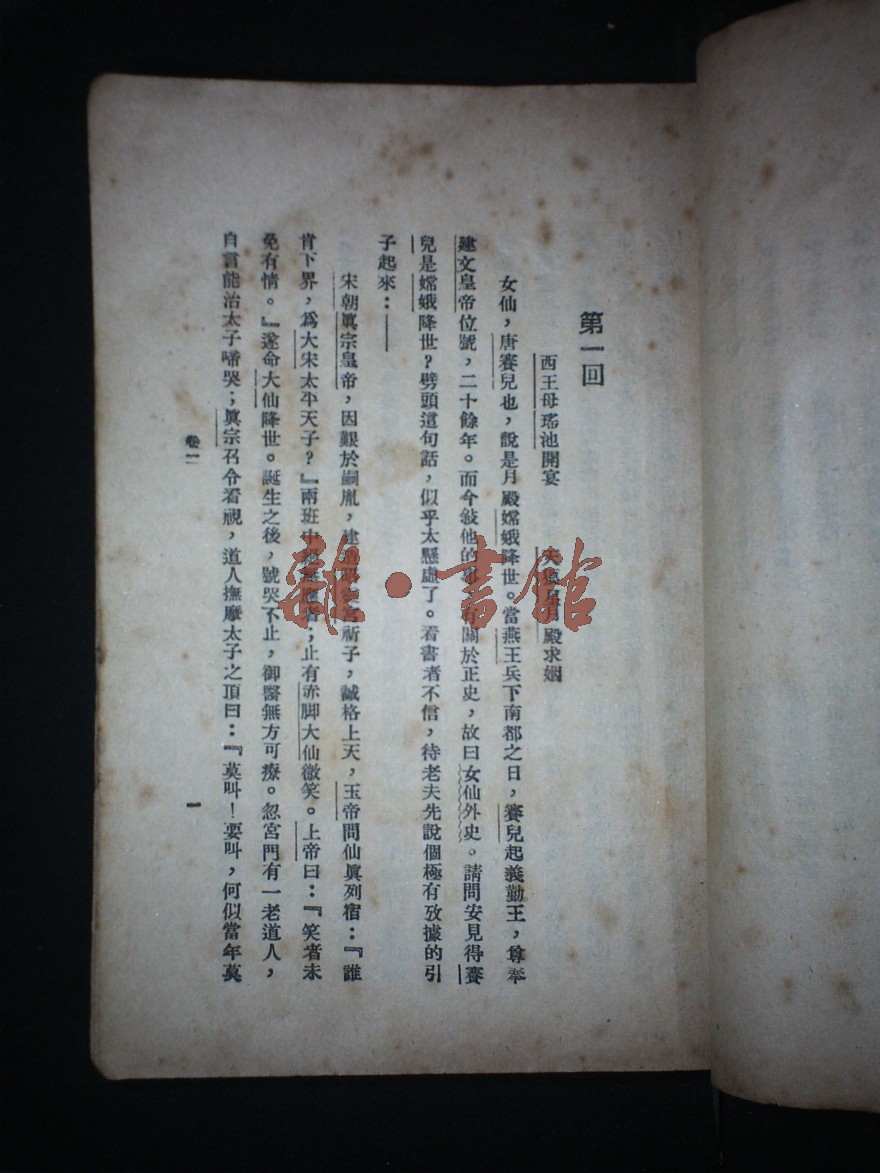 第一回
西王母瑤池開宴 天 殿求姻
女仙，唐賽兒也，說是月殿嫦娥降世。當燕王兵下南都之日，賽兒起義勤王，尊奉
建文皇帝位號，二十餘年。而今敍他的 有關於正史，故曰女仙外史。請問安見得賽
兒是嫦娥降世？劈頭這句話，似乎太懸虛了。看書者不信，待老夫先說個極有攷據的引
子起來：——
宋朝眞宗皇帝，因艱於嗣胤，建 宮祈子，諴格上天，玉帝問仙眞列宿：『誰
肯下界，爲大宋太平天子？』兩班中 者；止有赤脚大仙微笑。上帝曰：『笑者未
免有情。』遂命大仙降世。誕生之後，號哭不止，御醫無方可療。忽宮門有一老道人，
自言能治太子啼哭；眞宗召令看視，道人撫摩太子之頂曰：『莫叫！要叫，何似當年莫
卷一
一
雜·書館